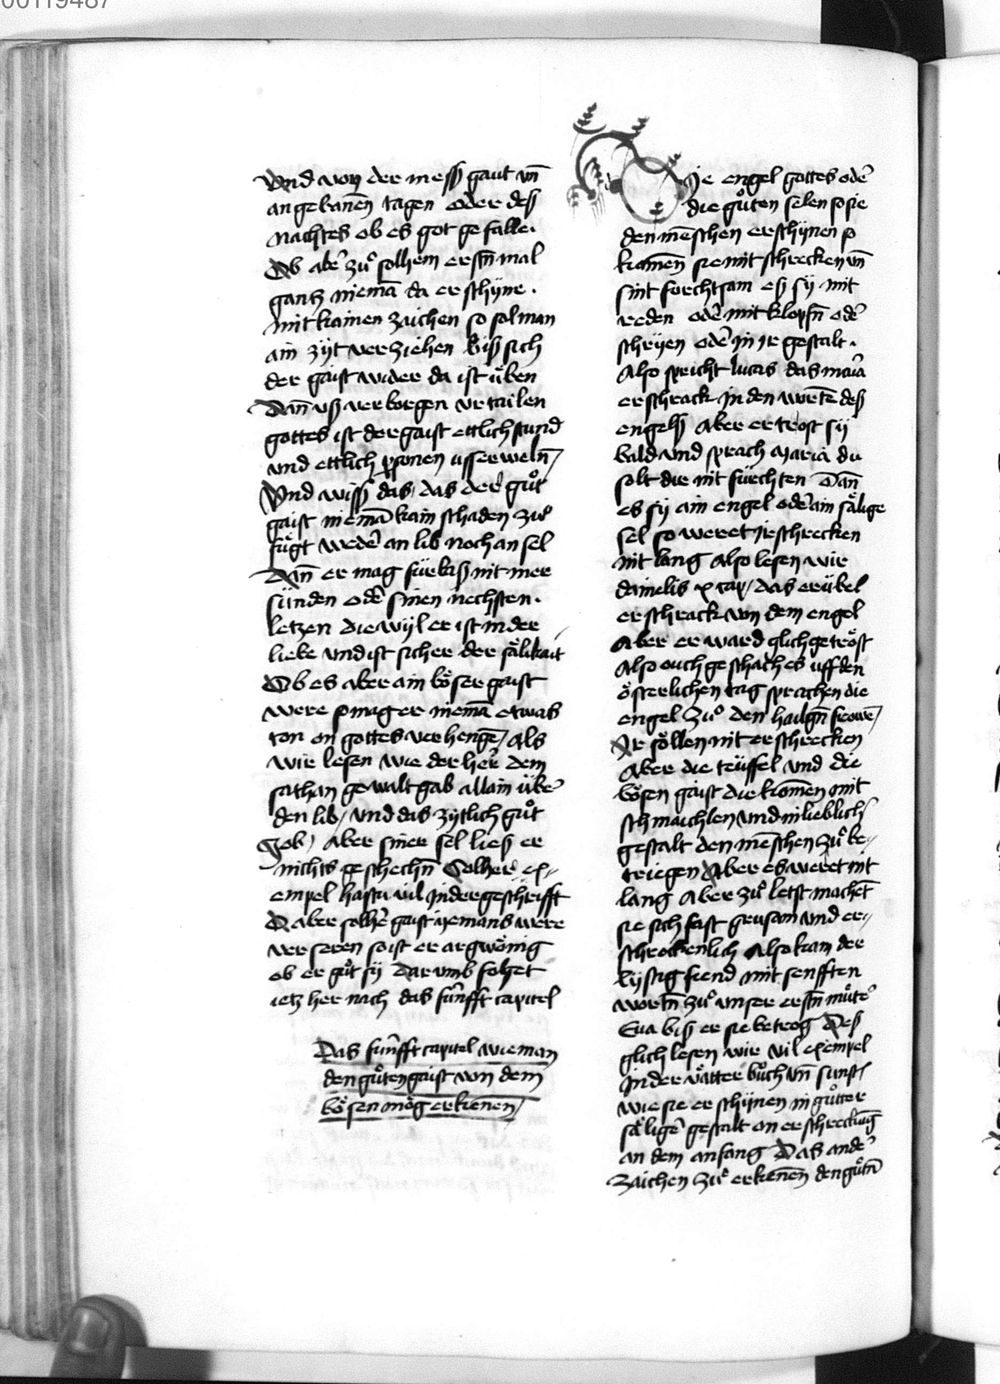 00119487
Vnd von der mess gaut vn̄
an gebanen̄ tagen oder deß
nachtes ob es got ge falle.
Ob abeꝰ zuͦ solhem erstn̄ mal
gantz niemā da er schyne.
mit kainen zaichen so sol man
ain zyt ver ziehen biß sich
der gaist wider da ist uͤben
Dan̄ vß verborgen vrtailen
gottes ist der gaist ettlich stund
vnd ettlich ꝑsonen usser weln̄
Vnd wiss das, das der guͦt
gaist niemā kain schaden zuͦ
fuͤgt wedeꝰ an lib noch an sel
Dan̄ er mag fürbaß nit mer
sünden odeꝰ sinen nechsten.
letzen die wyl er ist in der
liebe vnd ist sicher der saͤlikait
Ob es aber ain boͤser gaist
were so mag er niemā etwas
ton on gottes verhengē, Als
wir lesen wie der heꝰr dem
sathan gewalt gab allain übeꝰ
den lib, vnd das zytlich guͦt
Job, Aber siner sel ließ er
nichts geschechn̄ Solher ex-
empel hastu vil in der geschrifft
Ob aber solhē gaist yemans were
verseren so ist er argwoͤnig
ob er guͦt sy Dar vmb folget
ietz her nach das fünfft capitel
Das fünfft capitel wie man
den guͦten gaist von dem
boͤsen moͤg erkenen̄
Die engel gottes odeꝰ
die guͦten selen so sie
den mēschen erschynen so
komen̄ sie mit schrecken vn̄
sint forchtsam eß sy mit
reden odeꝰ mit klopfn̄ odeꝰ
schryen odeꝰ in ir gestalt.
Also spricht lucas das maria
erschrack in den wortē deß
engelß Aber er trost sy
bald vnd sprach maria du
solt die nit fürchten Dan̄
es sy ain engel odeꝰ ain saͤlige
sel so weret ir schrecken
nit lang Also lesen wir
danielis x cap, das er übel
erschrack von dem engel
Aber er ward glich getroͤst
Also ouch geschach es uff den
oͤsterlichen tag sprachen die
engel zuͦ den hailgn̄ frowē,
Ir soͤllen nit erschrecken
Aber die teüffel vnd die
boͤsen gaist die komen̄ mit
schmaichlen vnd in lieblich
gestalt den mēschen zuͦ be-
triegen Aber es weret nit
lang Aber zuͦ letst machet
sie sich fast grusam vnd er-
schrockenlich Also kam der
lystig fiend mit senfften
wortn̄ zuͦ vnser erstn̄ muͦteꝰ
Eua biß er sie betrog Deß
glich lesen wir vil exempel
in der vaͤtter buͦch vn̄ sunst
wie sie erschynen in guͦtter
saͤligeꝰ gestalt on erschreckūg
an dem anfang Das andeꝰ
zaichen zuͦ erkenen̄ den guͦtn̄